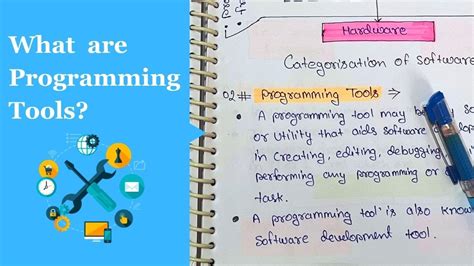 What are
Programming
Tools?
Hardware
Categorisation of Software
02# Programming Tools →
• A programming tool may be
or Utility that aids software
in Creating, editing, debugging
performing any programming or
task.
• A programming tool is also know
Software development tool.